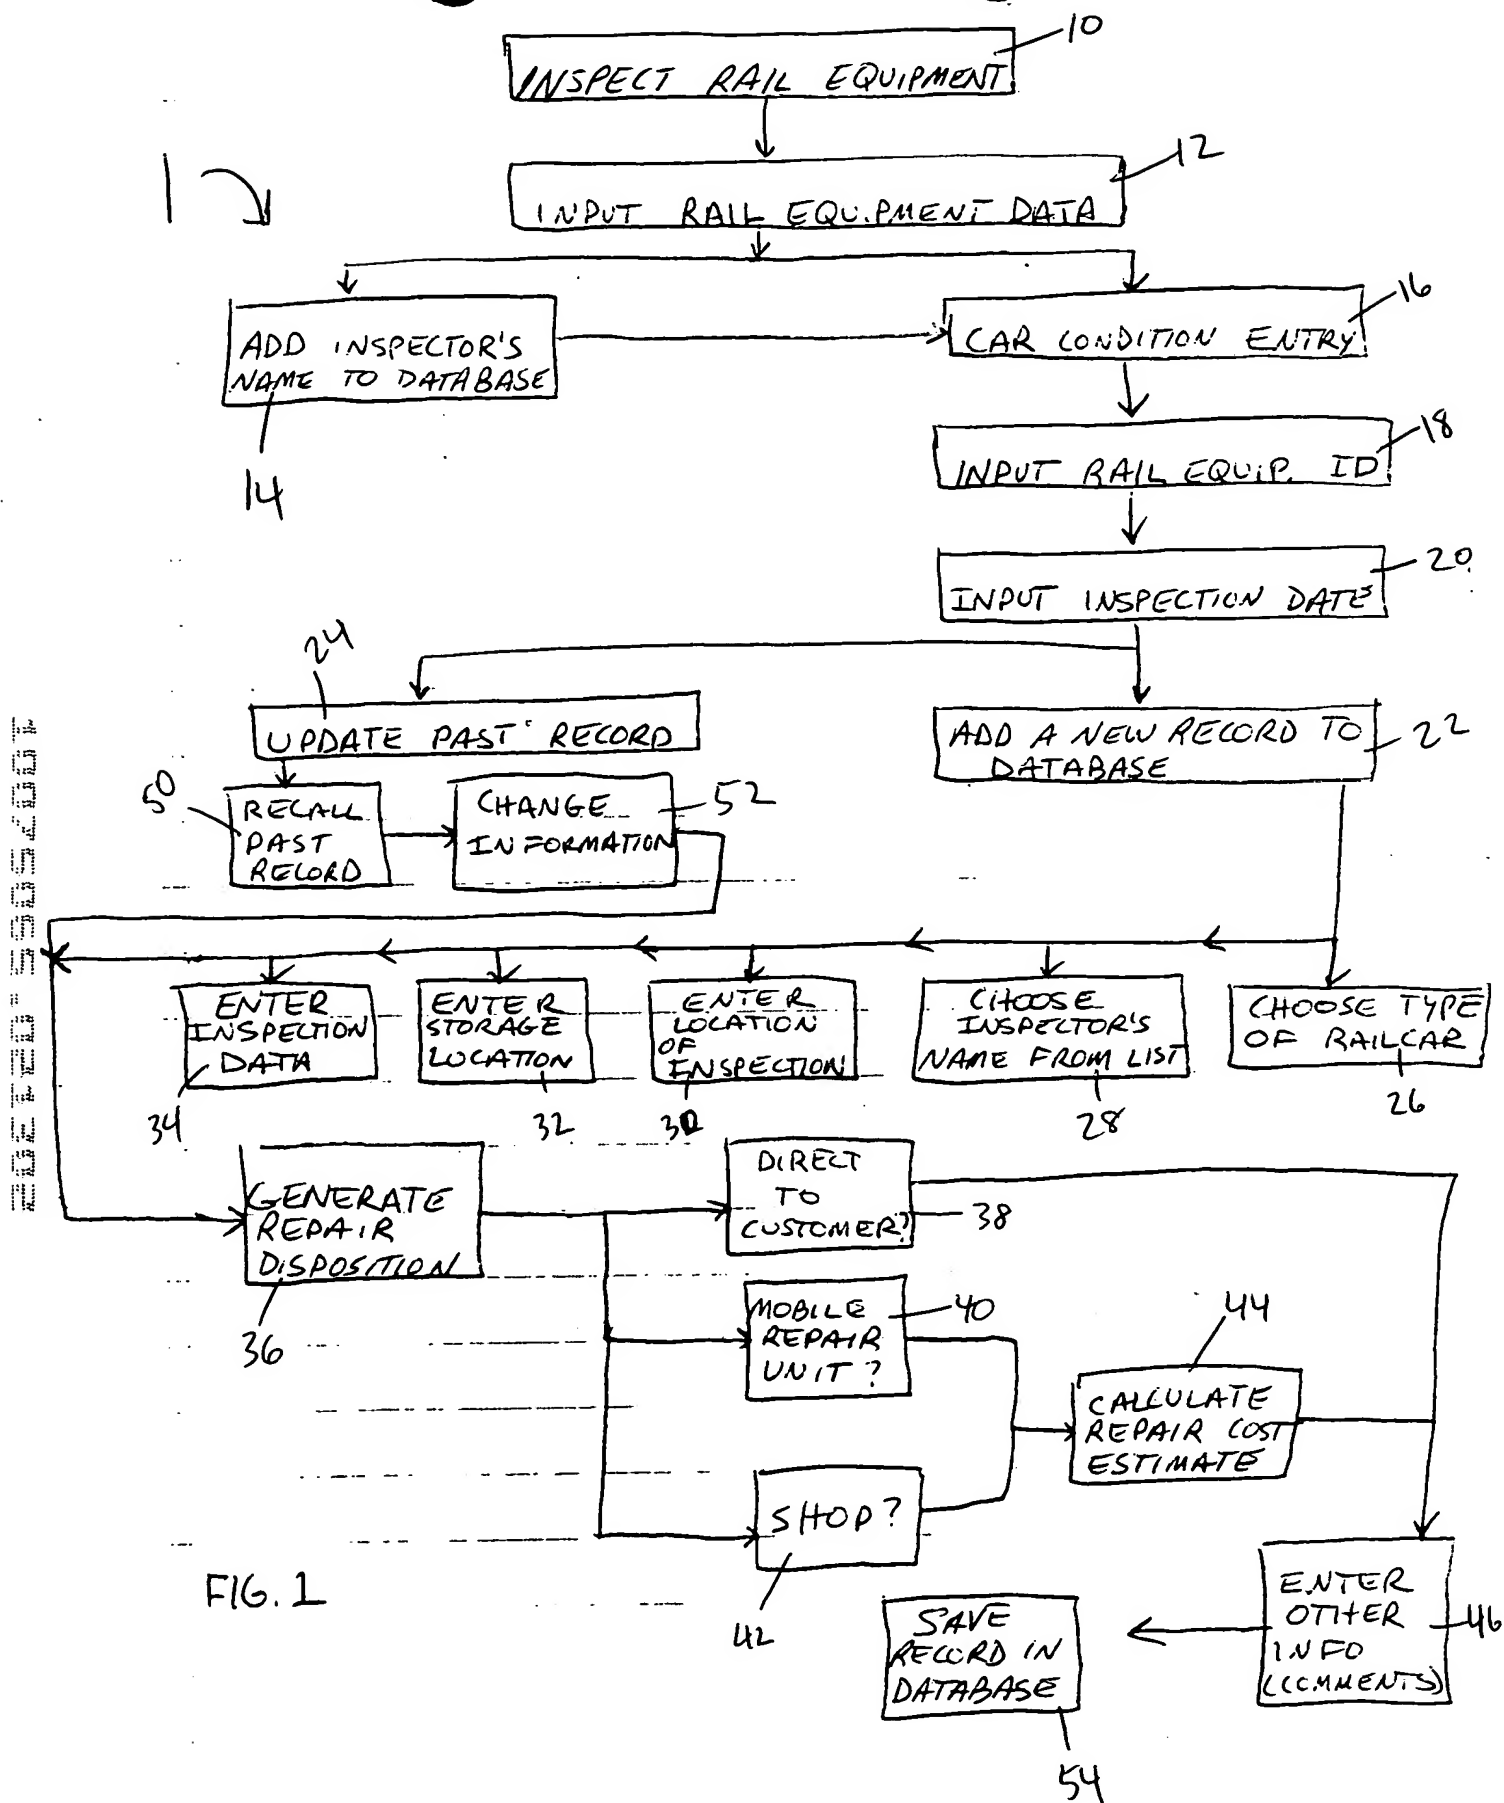 10
INSPECT RAIL EQUIPMENT
12
1
INPUT RAIL EQUIPMENT DATA
16
ADD INSPECTOR'S
NAME TO DATABASE
CAR CONDITION ENTRY
14
18
INPUT RAIL EQUIP. ID
20
INPUT INSPECTION DATE
24
UPDATE PAST RECORD
ADD A NEW RECORD TO
DATABASE
22
50
RECALL
PAST
RECORD
CHANGE
INFORMATION
52
ENTER
INSPECTION
DATA
34
ENTER
STORAGE
LOCATION
32
ENTER
LOCATION
OF
INSPECTION
30
CHOOSE
INSPECTOR'S
NAME FROM LIST
28
CHOOSE TYPE
OF RAILCAR
26
GENERATE
REPAIR
DISPOSITION
36
DIRECT
TO
CUSTOMER?
38
MOBILE
REPAIR
UNIT?
40
44
CALCULATE
REPAIR COST
ESTIMATE
SHOP?
42
FIG. 1
ENTER
OTHER
INFO
(COMMENTS)
46
SAVE
RECORD IN
DATABASE
54